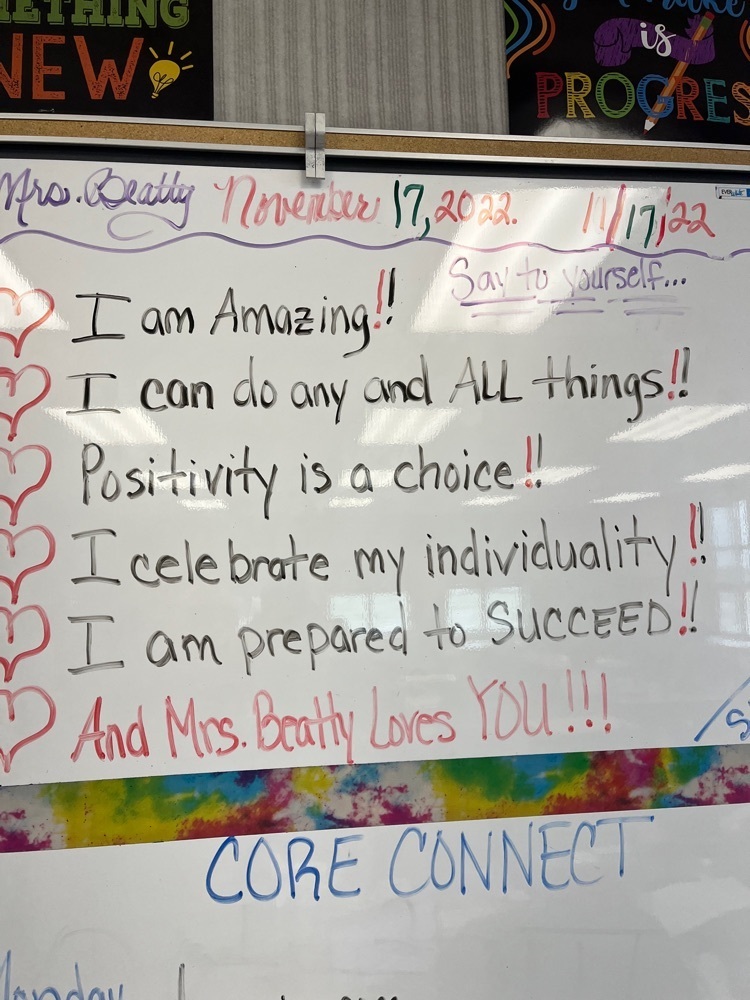 NEW
is
Mrs. Beatty November 17, 2022. 11/17/22
Say to yourself...
I am Amazing!!
I can do any and ALL things!!
Positivity is a choice!!
I celebrate my individuality!!
I am prepared to SUCCEED!!
And Mrs. Beatty Loves YOU!!!
CORE CONNECT